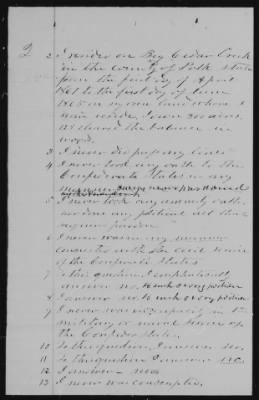 2
2 I reside on Big Cedar Creek
in the County of Polk State
from the first day of April
1861 to the first day of June
1865 on my own land where I
now reside, I own 300 acres,
125 cleared the balance in
woods.
3 I never did pass my lines
4 I never took any oath to the
Confederate States in any
manner
5 I never took any amnesty oath
nor done any political act that
required pardon
6 I never was in any manner
connected with the civil service
of the Confederate States
7 To this question I emphatically
answer no. to each & every portion
8 I answer no. to each & every portion
9 I never was in any capacity in the
military or naval service of
the Confederate States.
10 To this question I answer no.
11 To this question I answer no.
12 I answer no
13 I never was conscripted.